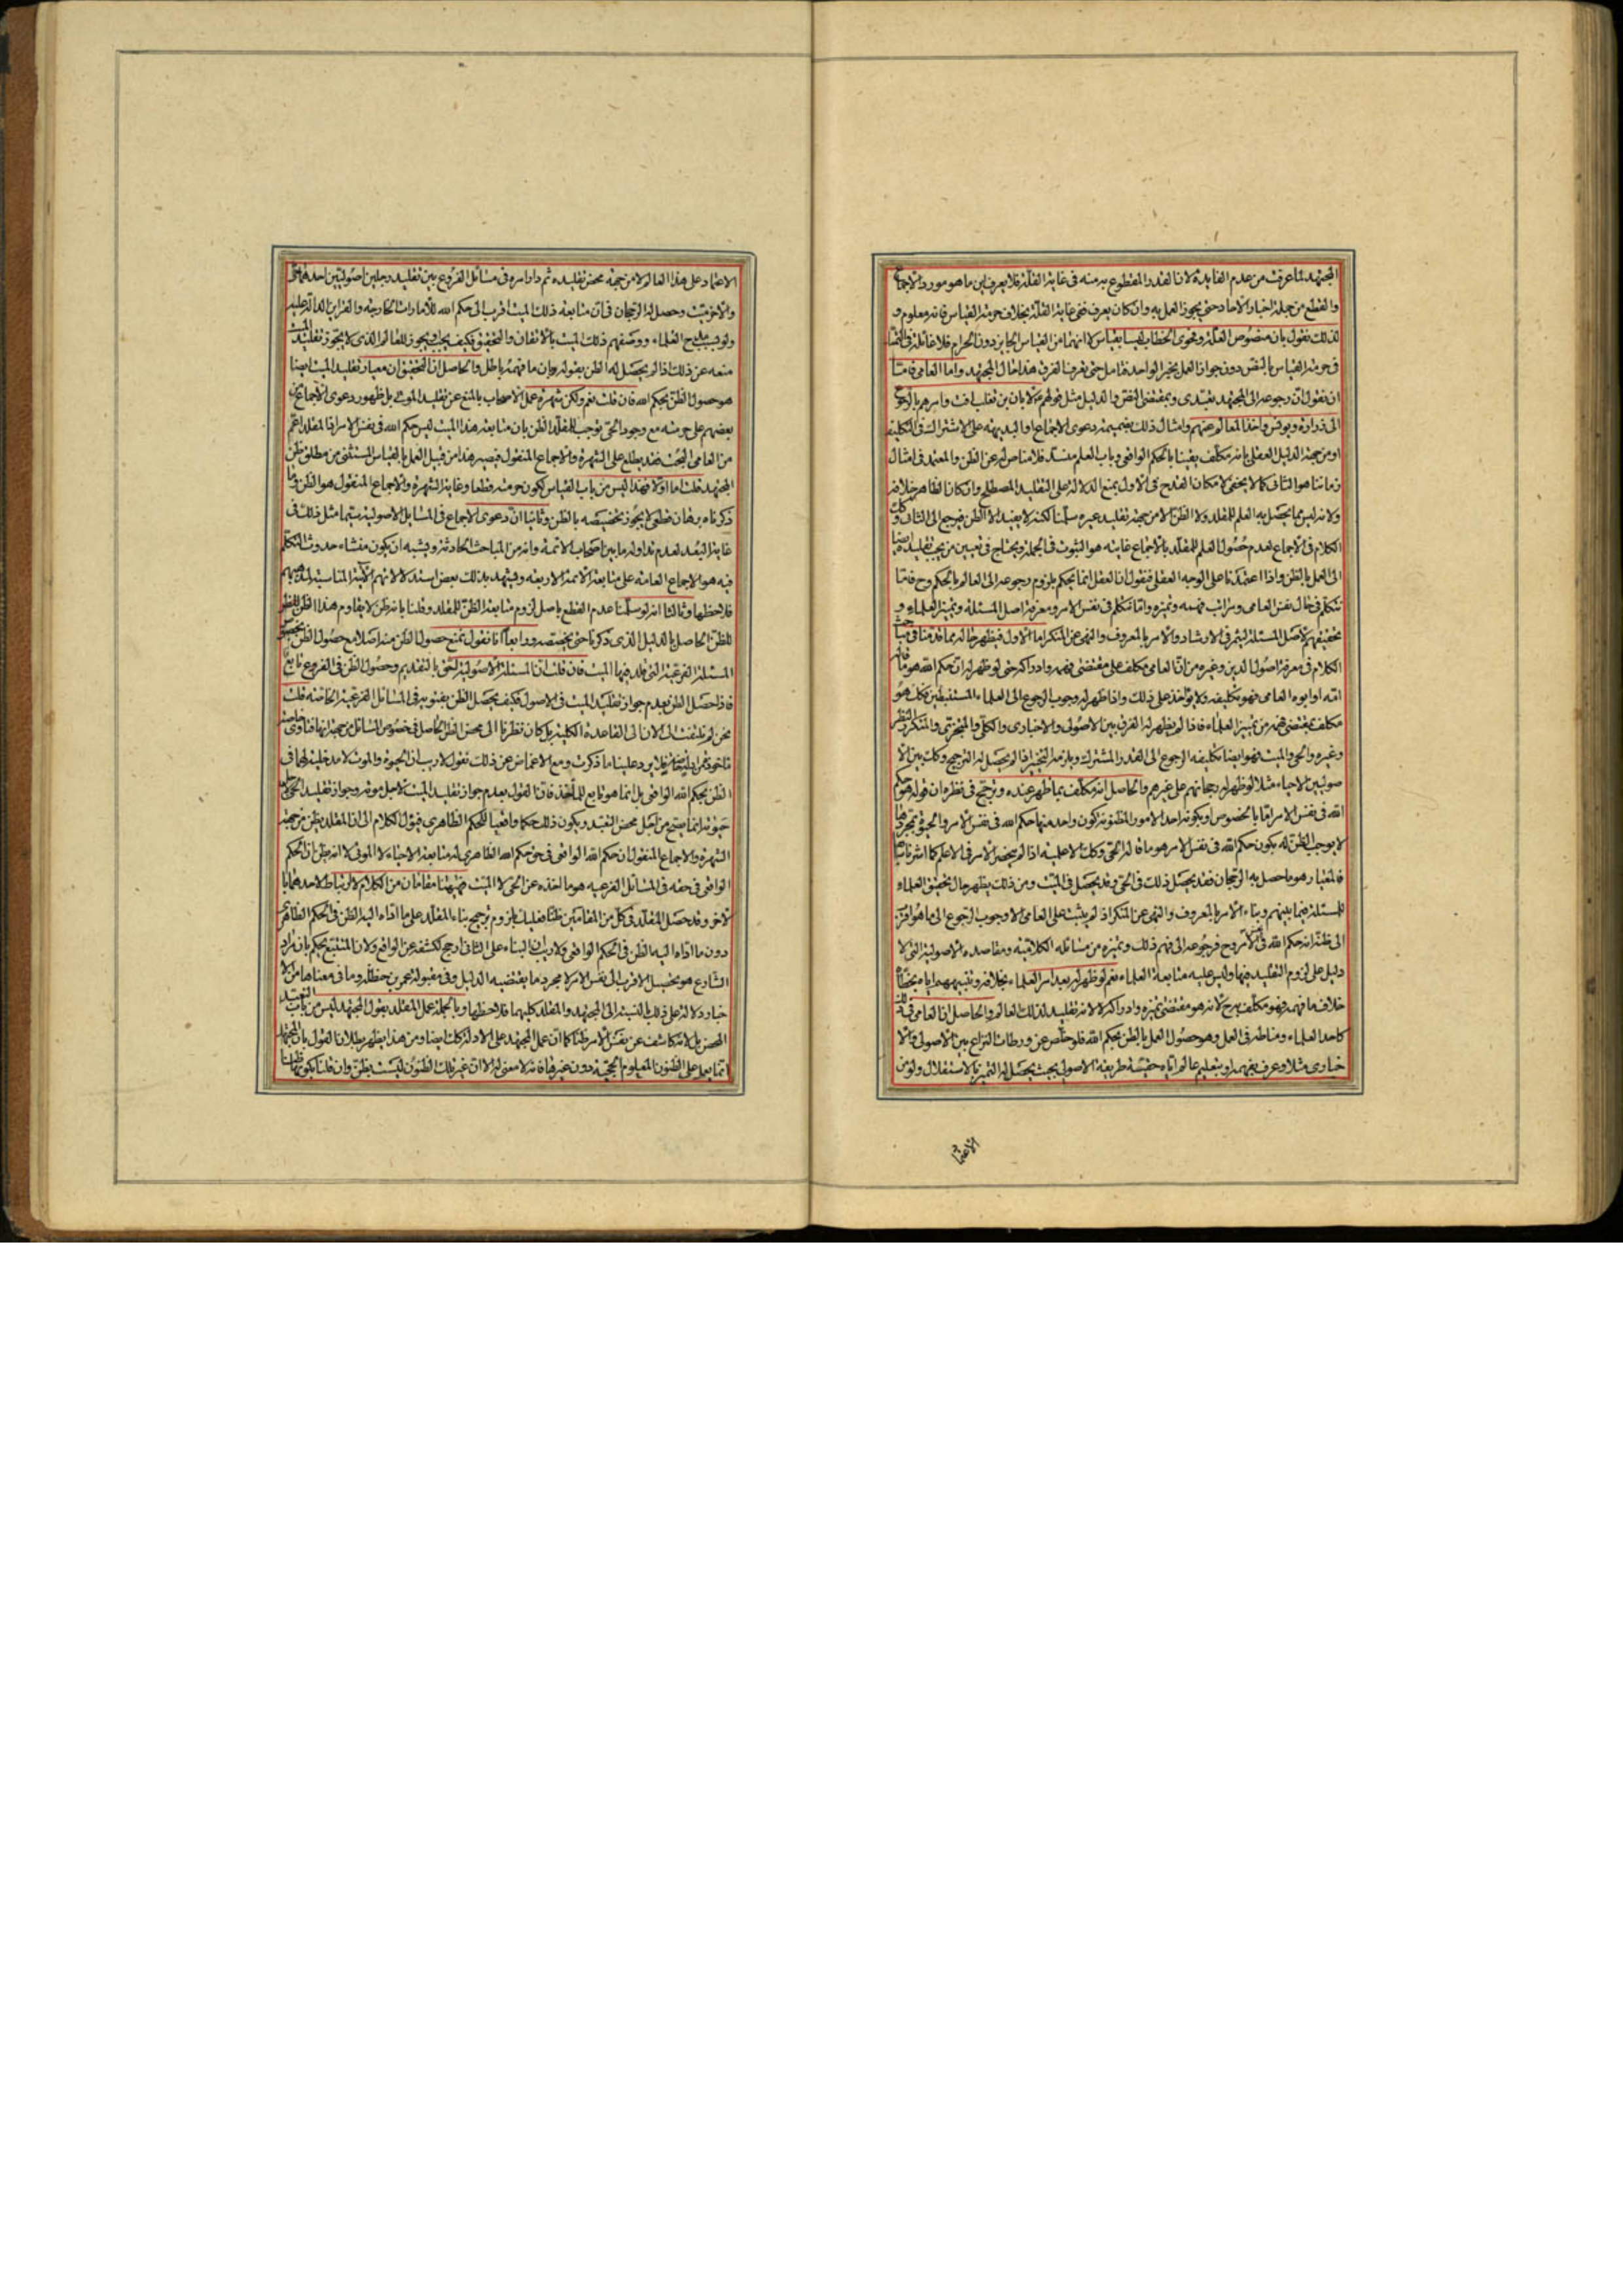 المجتهد لما عرفت من عدم الفايدة لان القدر المقطوع به منه في غاية القلة فلا يعرف اين ما هو مورد الاجماع
والقطع من جملة اخبار الاحاد حتى يجوز العمل به وان كان يعرف ففي غاية القلة بخلاف حرمة القياس فانه معلوم و
لذلك نقول بان منصوص العلة وفحوى الخطاب ليسا بقياس لا انهما من القياس الجايز دون الحرام فلا غائلة في
في حرمة القياس بالنص دون جواز العمل بخبر الواحد فتامل حتى يعرف الفرق هذا حال المجتهد واما العامي فاما
ان نقول ان رجوعه الى المجتهد تعبدي وبمقتضى النص والدليل مثل قولهم لابان بن تغلب افت وامرهم بالرجوع
الى زرارة ويونس واخذ المعالم عنهم وامثال ذلك بضميمة دعوى الاجماع او البديهة على الاشتراك في التكليف
او من جهة الدليل العقلي بانه مكلف يقينا بالحكم الواقعي وباب العلم منسد فلا مناص له عن الظن والمعتمد في امثال
زماننا هو الثاني كما لا يخفى لامكان القدح في الاول بمنع الدلالة على التقليد المصطلح وان كان الظاهر خلافه
ولانه ليس مما يحصل به العلم للمقلد ولا الظن الا من جهة تقليد غيره سلمنا لكنه لا يفيد الا الظن فيرجع الى الثاني وكك
الكلام في الاجماع لعدم حصول العلم للمقلد بالاجماع غايته هو الثبوت في الجملة ويحتاج في تعيين من يجب تقليده ايضا
الى العمل بالظن واذا اعتمدنا على الوجه العقلي فنقول ان العقل انما يحكم بلزوم رجوعه الى العالم بالحكم وح فاما
نتكلم في حال نفس العامي ومراتب فهمه وتميزه واما نتكلم في نفس الامر ومعرفة اصل المسئلة وتميز العلماء و
تحقيقهم لاصل المسئلة ليثمر في الارشاد والامر بالمعروف والنهي عن المنكر اما الاول فيظهر حاله مما قدمنا في مباحث
الكلام في معرفة اصول الدين وغيره من ان العامي مكلف على مقتضى فهمه وادراكه حتى لو ظهر له ان حكم الله هو ما قاله
امه او ابوه العامي فهو تكليفه ولا يؤاخذ على ذلك واذا ظهر له وجوب الرجوع الى العلماء المستنبطين فكك هو
مكلف بمقتضى فهمه من تميز العلماء فاذا لم يظهر له الفرق بين الاصولي والاخباري والكل والمتجزي والمنكر للنظر
وغيره والحي والميت فهو ايضا تكليفه الرجوع الى القدر المشترك ويلزمه التخيير اذا لم يحصل له الترجيح وكك بين الا
صوليين الاحياء مثلا لو ظهر له رجحانهم على غيرهم والحاصل انه مكلف بما ظهر عنده وترجح في نظره ان قوله هو حكم
الله في نفس الامر اما بالخصوص او بكونه احد الامور المظنونة كون واحد منها حكم الله في نفس الامر والحيوة بمجردها
لا يوجب الظن له بكون حكم الله في نفس الامر هو ما قاله الحي وكك الاعلمية اذا لم ينحصر الامر في الاعلم كما اشرنا سابقا
فالمعيار هو ما حصل به الرجحان فقد يحصل ذلك في الحي وقد يحصل في الميت ومن ذلك يظهر حال تحقيق العلماء
للمسئلة فيما بينهم وبناء الامر بالمعروف والنهي عن المنكر اذ لم يثبت على العامي الا وجوب الرجوع الى ما هو اقرب
الى ظنه انه حكم الله في نفس الامر وح فرجوعه الى فهم ذلك وتميزه من مسائله الكلامية ومقاصده الاصولية التي لا
دليل على لزوم التقليد فيها وليس عليه متابعة العلماء نعم لو ظهر له بعد امر العلماء بخلافه وتنبيههم اياه بخطائه
خلاف ما فهمه فهو مكلف به ح لانه هو مقتضى تميزه وادراكه لا لانه تقليد لذلك العالم والحاصل ان العامي في ذلك
كاحد العلماء ومناطه في العمل وهو حصول العمل بالظن بحكم الله فلو خلص عن ورطات النزاع بين الاصولي والا
خباري مثلا وعرف بفهمه او بتعليم عالم اياه حقية طريقة الاصولي بحيث يحصل له التميز بالاستقلال ولو من
الاعتما
الاعتماد على هذا العالم لا من جهة محض تقليده ثم دار امره في مسائل الفروع بين تقليد رجلين اصوليين احدهما حي
والاخر ميت وحصل له الرجحان في ان متابعة ذلك الميت اقرب الى حكم الله للامارات الخارجة والقراين الدالة عليه
ولو بسبب مدح العلماء ووصفهم ذلك الميت بالاتقان والتحقيق فكيف يجوز للعالم الذي لا يجوز تقليد الميت
منعه عن ذلك اذا لم يحصل له الظن بقوله وبان ما فهمه باطل فالحاصل ان التحقيق ان معيار تقليد الميت ايضا
هو حصول الظن بحكم الله فان قلت نعم ولكن شهرة عمل الاصحاب بالمنع عن تقليد الموتى بل ظهور دعوى الاجماع عن
بعضهم على حرمته مع وجود الحي يوجب للمقلد الظن بان متابعة هذا الميت ليس حكم الله في نفس الامر اذا المقلد اعم
من العامي البحت فقد يطلع على الشهرة والاجماع المنقول فيصير هذا من قبيل العمل بالقياس المستثنى من مطلق ظن
المجتهد قلت اما اولا فهذا ليس من باب القياس لكون حرمته قطعا وغاية الشهرة والاجماع المنقول هو الظن وما
ذكرناه برهان قطعي لا يجوز تخصيصه بالظن وثانيا ان دعوى الاجماع في المسائل الاصولية سيما مثل ذلك في
غاية البعد لعدم تداوله ما بين اصحاب الائمة وانه من المباحث الحادثة ويشبه ان يكون منشاء حدوث التكلم
فيه هو الاجماع العامة على متابعة الائمة الاربعة ويشهد بذلك بعض استدلالاتهم الاتية المناسبة لمذهبهم
فلاحظها وثالثا انه لو سلمنا عدم القطع باصل لزوم متابعة الظن للمقلد وقلنا بانه ظن لا يقاوم هذا الظن للظن
للظن الحاصل بالدليل الذي ذكرنا حتى يخصصه ورابعا انا نقول نمنع حصول الظن منه اصلا مع حصول الظن بخصوص
المسئلة الفرعية التي قلد فيها الميت فان قلت ان المسئلة الاصولية احق بالتقديم وحصول الظن في الفروع تابع
فاذا حصل الظن بعدم جواز تقليد الميت في الاصول فكيف يحصل الظن بفتويه في المسائل الفرعية الخاصة قلت
نحن لم نلتفت الى الان الى القاعدة الكلية بل كان نظرنا الى محض الظن الحاصل في خصوص المسائل من جهة انها فتاوى
ماخوذة فلا يرد علينا ما ذكرت ومع الاغماض عن ذلك نقول لا ريب ان الحيوة والموت لا مدخلية لهما في
الظن بحكم الله الواقعي بل انما هو تابع للماخذ فان القول بعدم جواز تقليد الميت لاجل موته وجواز تقليد الحي لاجل
حيوته انما يصح من اجل محض التعبد ويكون ذلك حكما واقعيا للحكم الظاهري فيؤل الكلام الى ان المقلد يظن من جهة
الشهرة والاجماع المنقول ان حكم الله الواقعي في حق حكم الله الظاهري له متابعة الاحياء لا الموتى لا انه يظن ان الحكم
الواقعي في حقه في المسائل الفرعية هو ما اخذه عن الحي لا الميت فههنا مقامان من الكلام لا ارتباط لاحدهما با
لاخر وقد حصل للمقلد في كل من المقامين ظن فعليك بلزوم ترجيح بناء المقلد على ما اداه اليه الظن في الحكم الظاهري
دون ما اداه اليه الظن في الحكم الواقعي ولا ريب ان البناء على الثاني ارجح لكشفه عن الواقع ولان المتتبع يحكم بان مراد
الشارع هو تحصيل الاقرب الى نفس الامر لا مجرد ما يقتضيه الدليل وفي مقبولة عمر بن حنظلة وما في معناها من الا
خبار دلالة على ذلك بالنسبة الى المجتهد والمقلد كليهما فلاحظها وبالجملة عمل المقلد بقول المجتهد ليس من باب التعبد
المحض بل لانه كاشف عن نفس الامر ظنا كما ان عمل المجتهد على الادلة كك ايضا ومن هذا يظهر بطلان القول بان المجتهد
انما يعمل على الظنون المعلوم الحجية دون غيرها فانه لا معنى له الا ان غير تلك الظنون ليست بظن وان قلنا بكونها ظنا